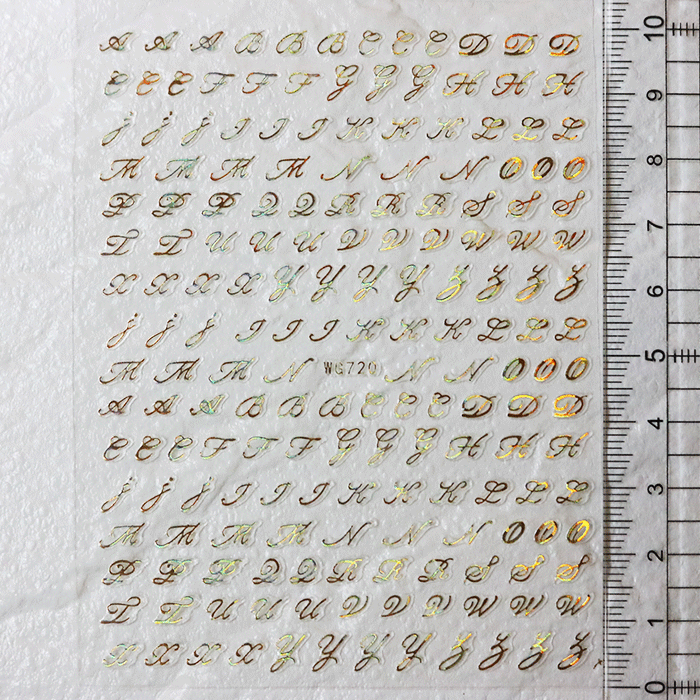 A A A B B B C C C D D D
E E E F F F G G G H H H
J J J I I I K K K L L L
M M M M N N N O O O
P P P Q Q R R R S S S
T T U U U V V V W W W
X X X X Y Y Y Y Z Z Z Z
J J J I I I K K K L L L
M M M N WG720 N N O O O
A A A B B B C C C D D D
E E E F F F G G G H H H
J J J I I I K K K L L L
M M M M N N N O O O
P P P Q Q R R R S S S
T T U U U V V V W W W
X X X X Y Y Y Y Z Z Z Z
10
9
8
7
6
5
4
3
2
1
0